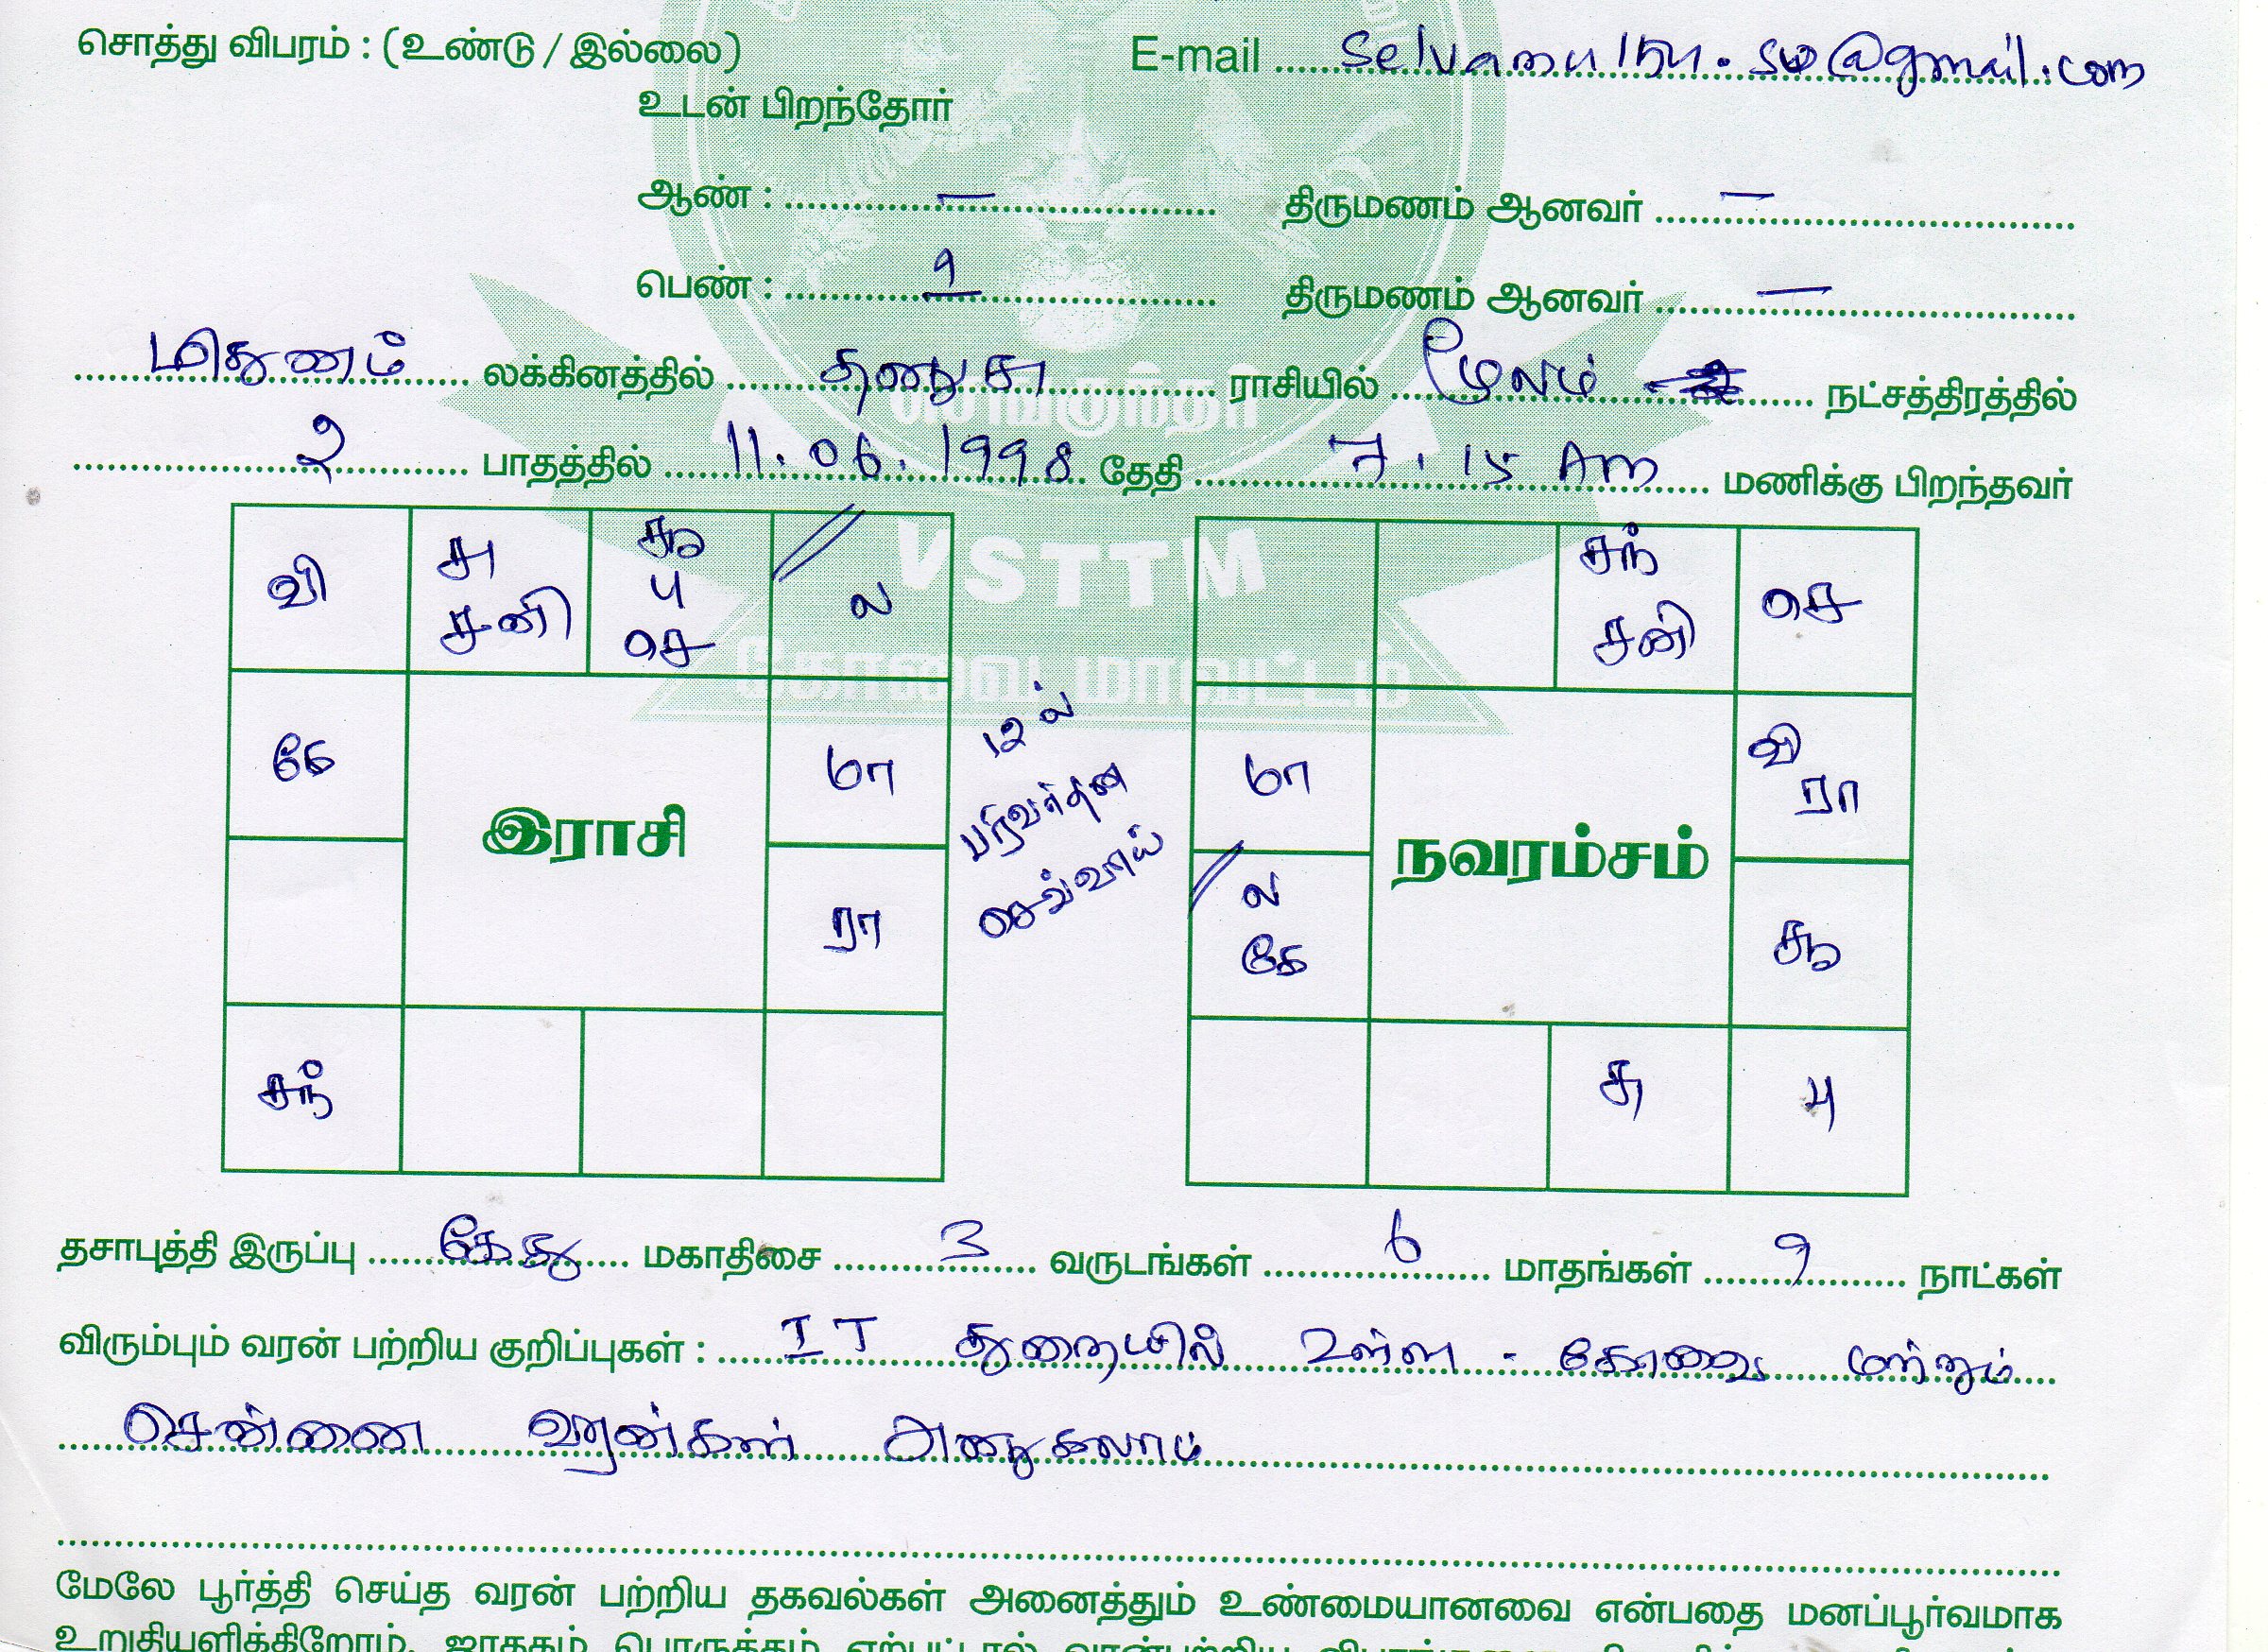 சொத்து விபரம் : (உண்டு / இல்லை) E-mail
உடன் பிறந்தோர்
ஆண் : — திருமணம் ஆனவர் —
பெண் : 1 திருமணம் ஆனவர் —
மிதுனம் லக்கினத்தில் தனுசு ராசியில் மூலம் நட்சத்திரத்தில்
2 பாதத்தில் 11.06.1998 தேதி 7.15 Am மணிக்கு பிறந்தவர்
செங்குந்தர்
VSTTM
கோவை மாவட்டம்
வி சு சனி சூ பு செ ல
கே மா
இராசி
ரா
சந்
12 ல்
பரிவர்தன
செவ்வாய்
சந் சனி செ
மா வி ரா
நவரம்சம்
ல கே சூ
சு பு
தசாபுத்தி இருப்பு கேது மகாதிசை 3 வருடங்கள் 6 மாதங்கள் 9 நாட்கள்
விரும்பும் வரன் பற்றிய குறிப்புகள் : IT துறையில் உள்ள - கோவை மற்றும்
சென்னை வரன்கள் அணுகலாம்
மேலே பூர்த்தி செய்த வரன் பற்றிய தகவல்கள் அனைத்தும் உண்மையானவை என்பதை மனப்பூர்வமாக
உறுதியளிக்கிறோம். ஜாதகம் பொருத்தம் ஏற்பட்டால்